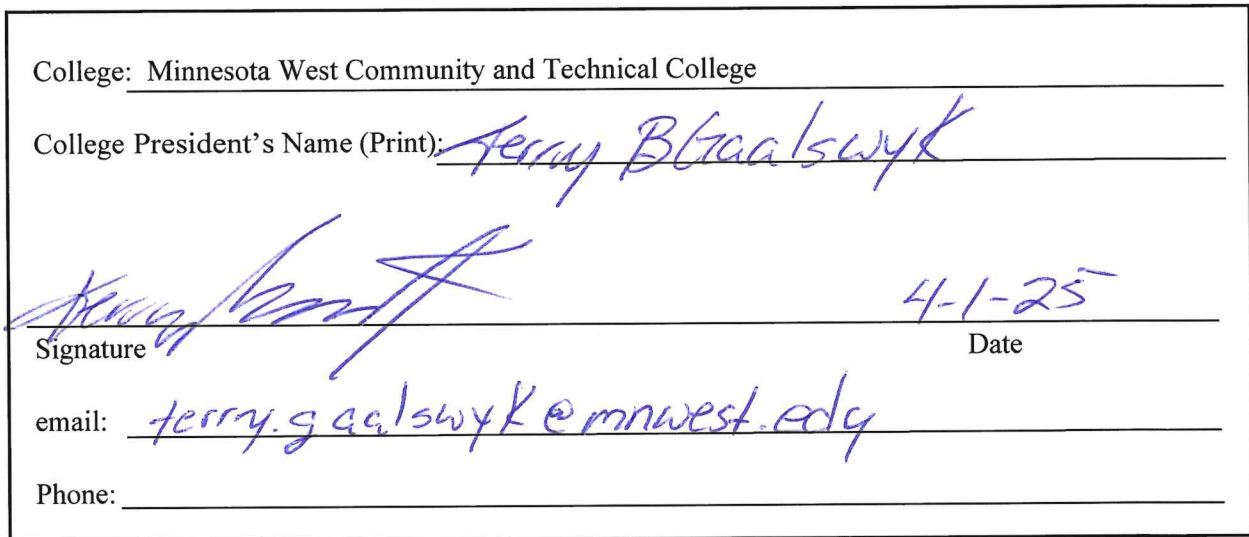 College: Minnesota West Community and Technical College
College President's Name (Print): Terry B Gaalswyk
4-1-25
Signature Date
email: terry.gaalswyk@mnwest.edu
Phone: